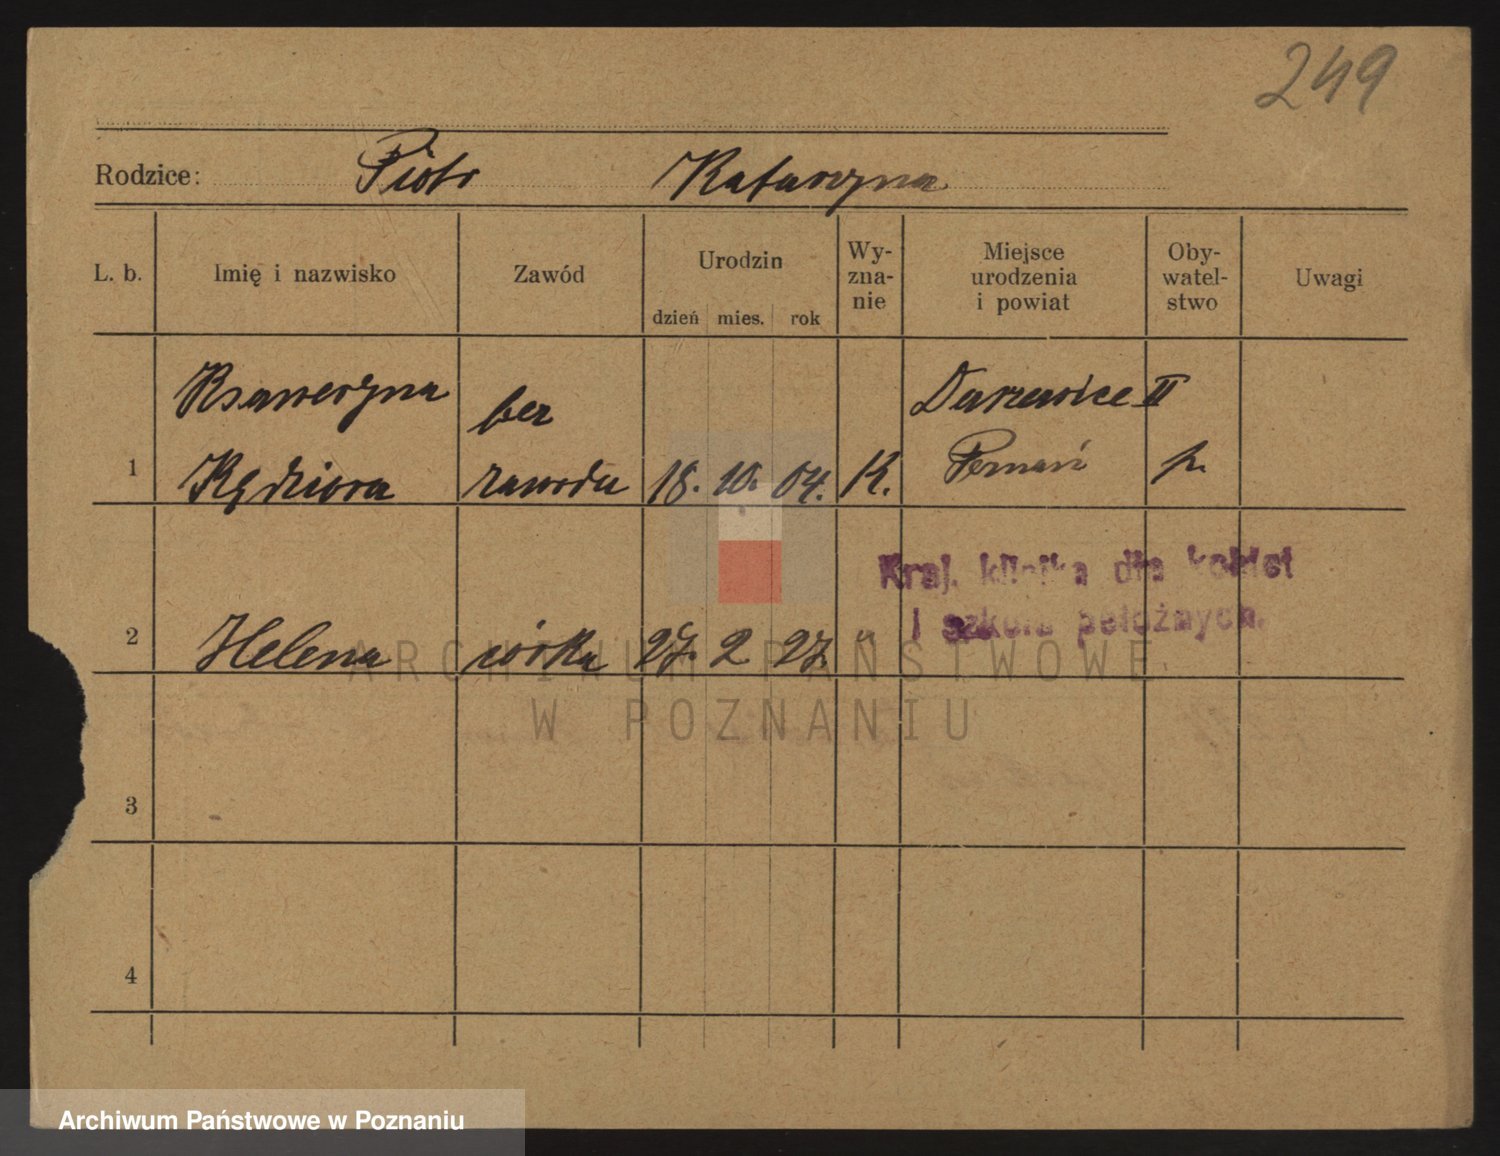 249
Rodzice: Piotr Katarzyna
L. b. Imię i nazwisko Zawód Urodzin dzień mies. rok Wy-zna-nie Miejsce urodzenia i powiat Oby-watel-stwo Uwagi
Ksaweryna bez II
1 Kędziora zawodu 18. 10. 04. K. Poznań p.
Kraj. klinika dla kobiet
i szkoła położnych.
2 Helena córka 27. 2 27. "
ARCHIWUM PAŃSTWOWE
W POZNANIU
3
4
Archiwum Państwowe w Poznaniu